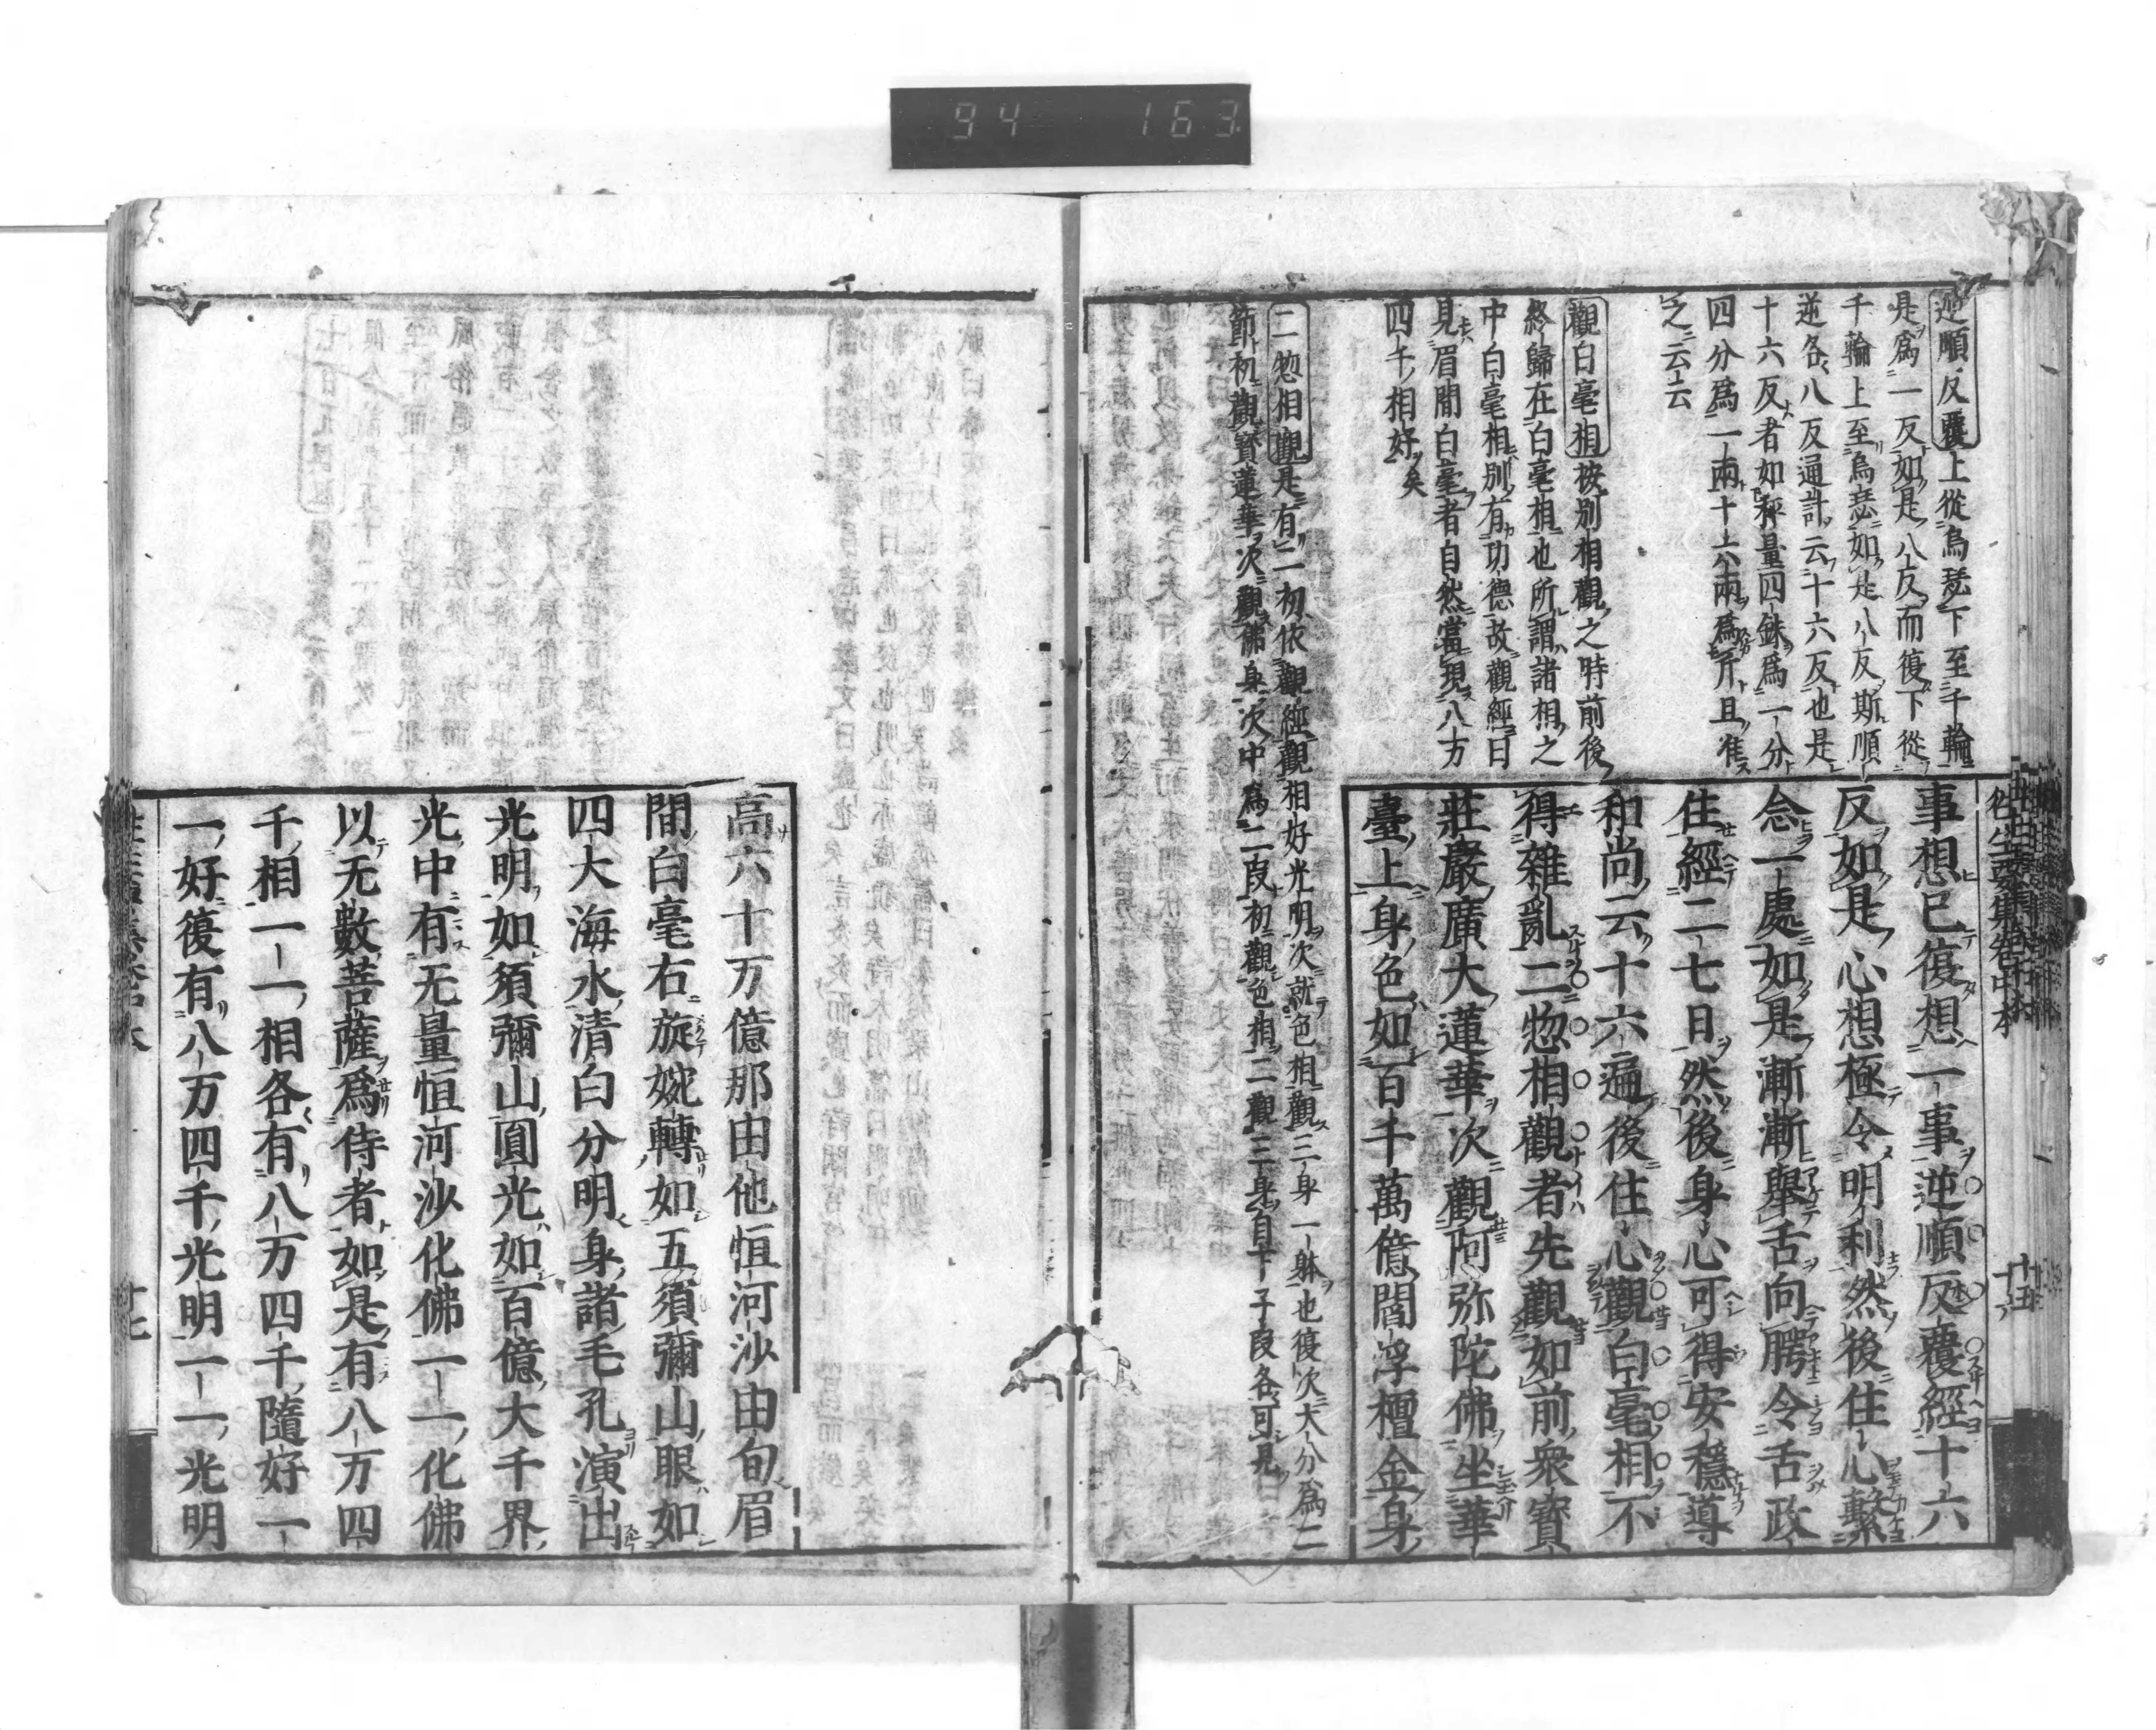 94 163
往生要集卷中本
十五
逆順反覆上從烏瑟下至千輪
是爲一反如是八反而復下從
千輪上至烏瑟如是八反斯順
逆各八反通計云十六反也是
十六反者如秤量四銖爲一分
四分爲一兩十六兩爲斤且准
之云云
觀白毫相按別相觀之時前後
終歸在白毫相也所謂諸相之
中白毫相別有功德故觀經曰
見眉間白毫者自然當現八万
四千相好矣
二惣相觀是有二初依觀經觀相好光明次就色相觀三身一躰也復次大分爲二
節初觀寳蓮華次觀佛身次中爲二段初觀色相二觀三身自下子段各可見
事想已復想一事逆順反覆經十六
反如是心想極令明利然後住心繫
念一處如是漸漸舉舌向腭令舌政
住經二七日然後身心可得安穩導
和尚云十六遍後住心觀白毫相不
得雜亂二惣相觀者先觀如前衆寳
莊嚴廣大蓮華次觀阿弥陀佛坐華
臺上身色如百千萬億閻浮檀金身
高六十万億那由他恒河沙由旬眉
間白毫右旋婉轉如五須彌山眼如
四大海水清白分明身諸毛孔演出
光明如須彌山圓光如百億大千界
光中有无量恒河沙化佛一一化佛
以无數菩薩爲侍者如是有八万四
千相一一相各有八万四千隨好一
一好復有八万四千光明一一光明
十七